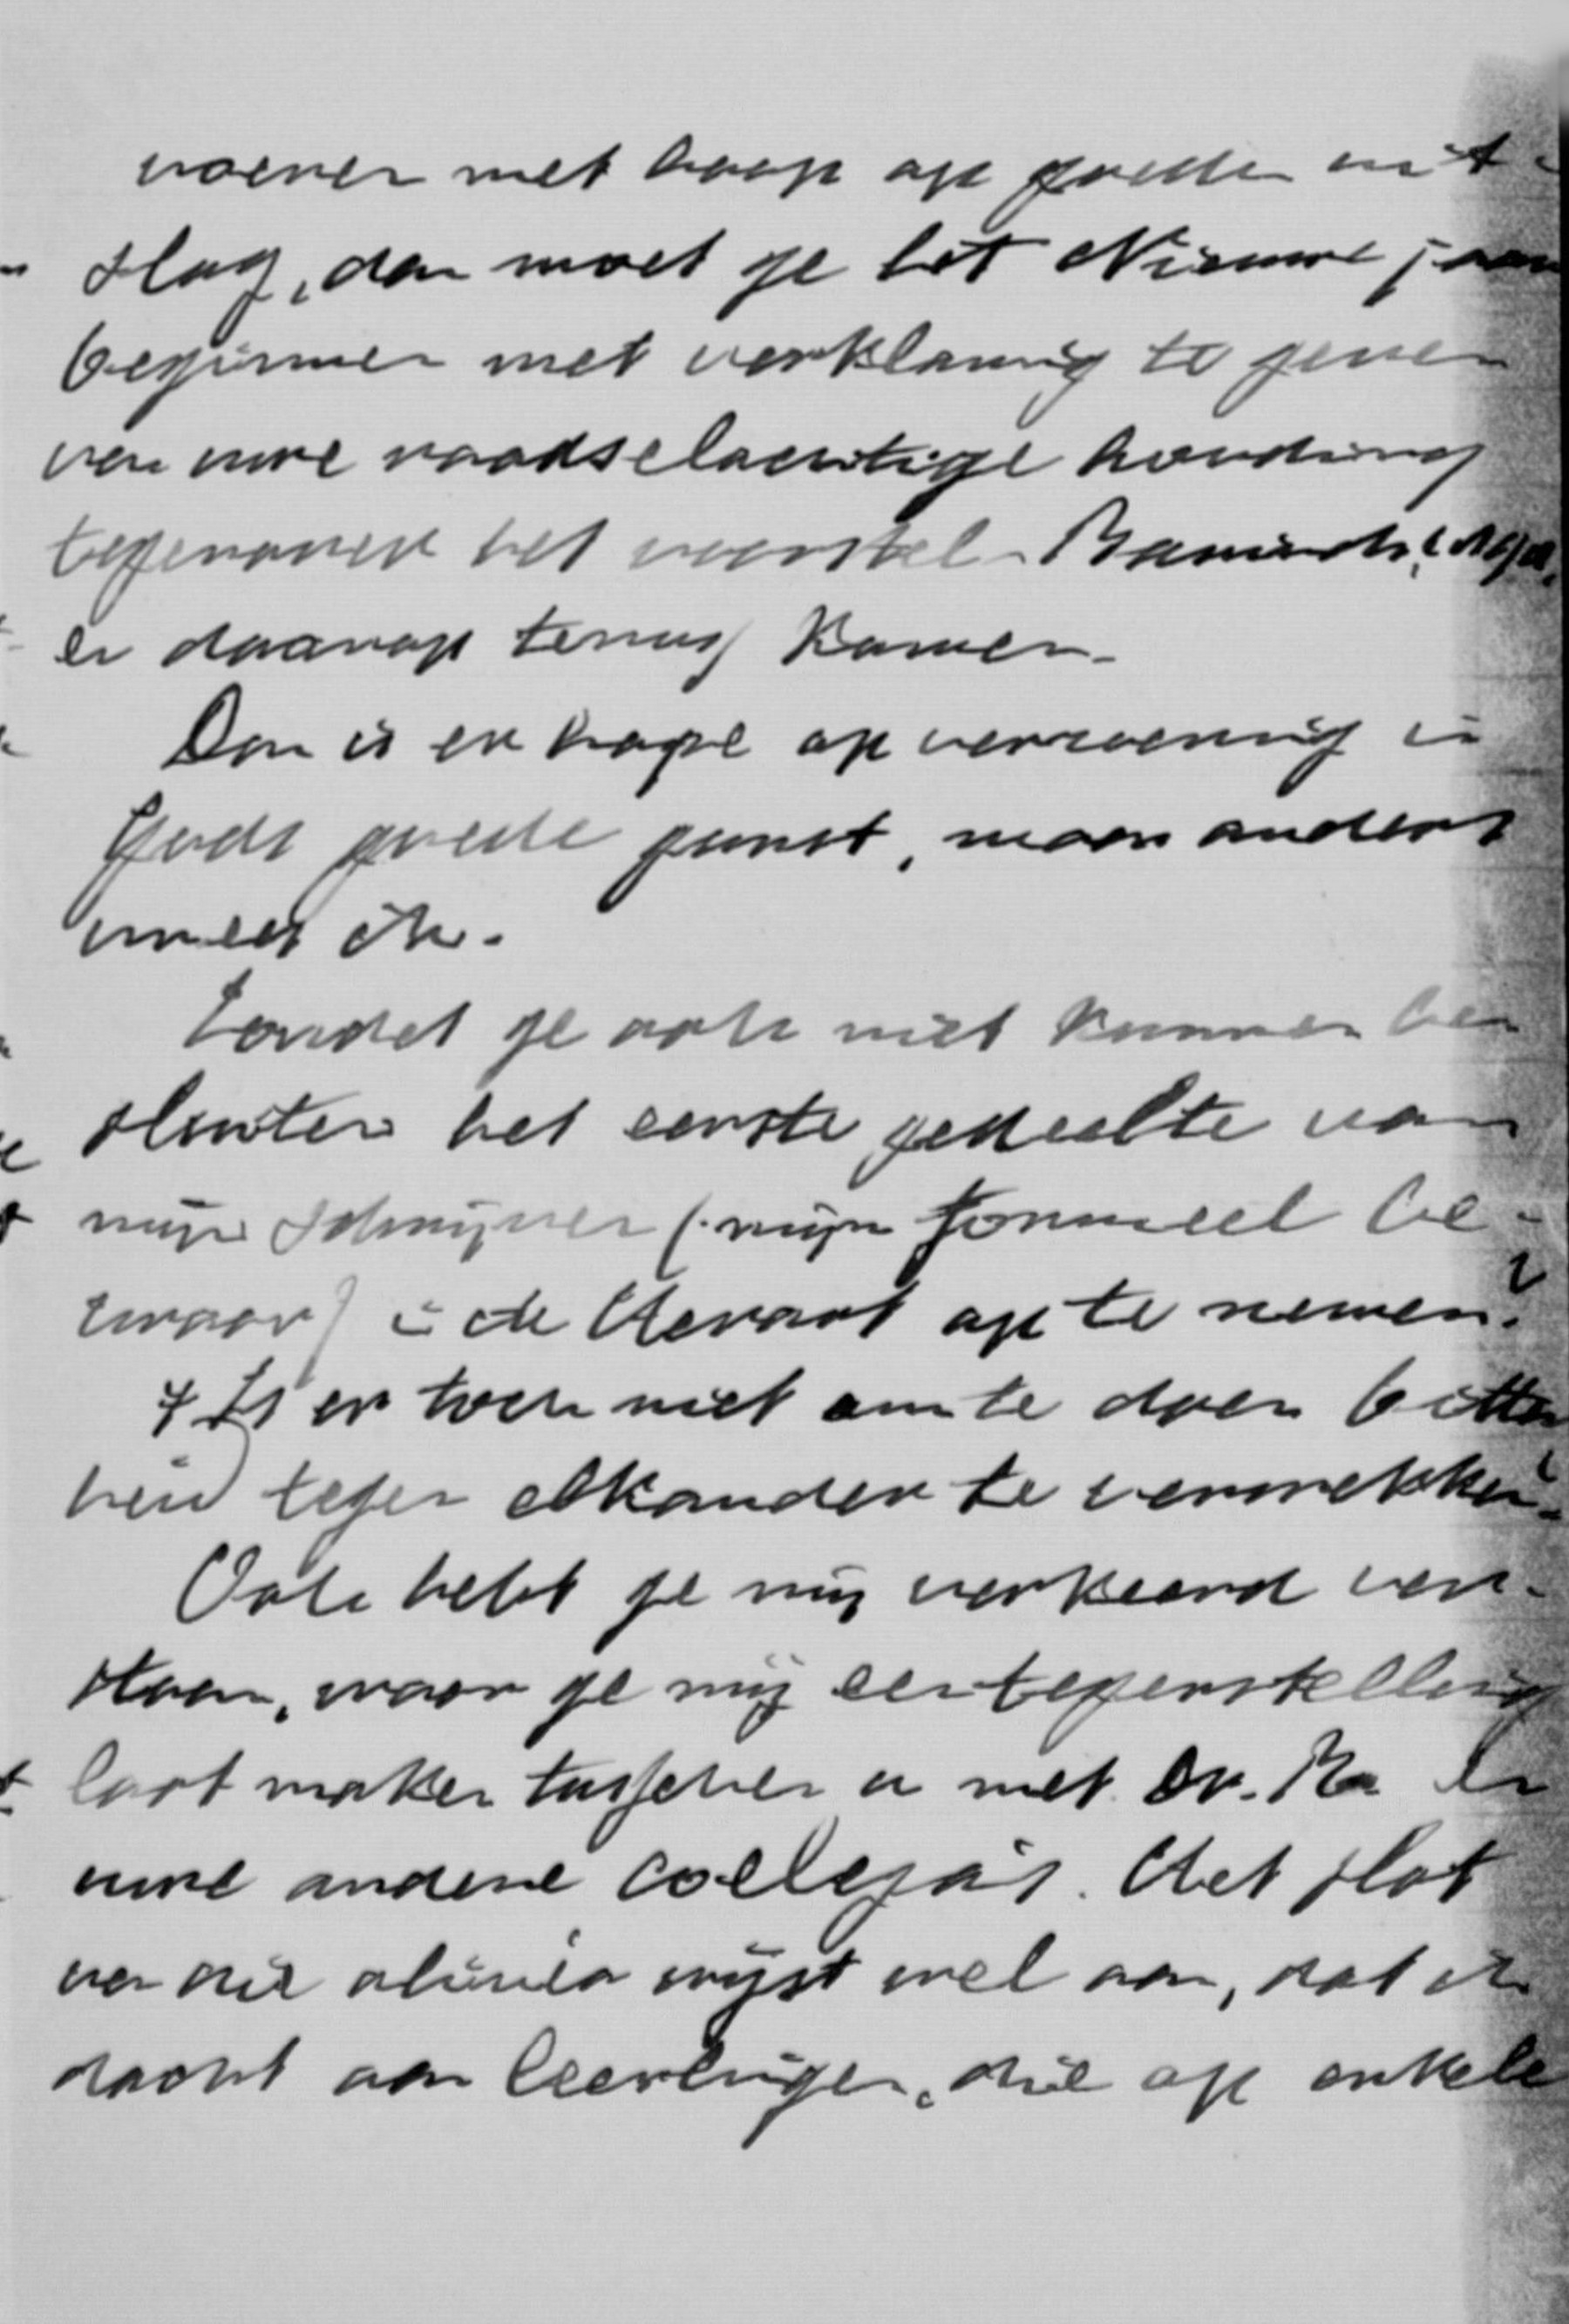 voeren met hoop op goeden uit-
slag, dan moet ge het Nieuwe jaar
beginnen met verklaring te geven
van uwe raadselachtige houding
tegenover het voorstel
en daarop terug komen.
Dan is er hope op verzoening in
Gods goede gunst, maar anders
vrees ik.
Zoudet ge ook niet kunnen be
sluiten het eerste gedeelte van
mijn schrijven (mijn formeel be-
zwaar) in de Heraut op te nemen?
't Is er toch niet om te doen bitter
heid tegen elkander te verwekken.
Ook hebt ge mij verkeerd ver-
staan, waar ge mij een tegenstelling
laat maken tusschen u met Dr. en
uwe andere collega's. Het slot
van die alinéa wijst wel aan, dat ik
dacht aan leerlingen, die op enkele